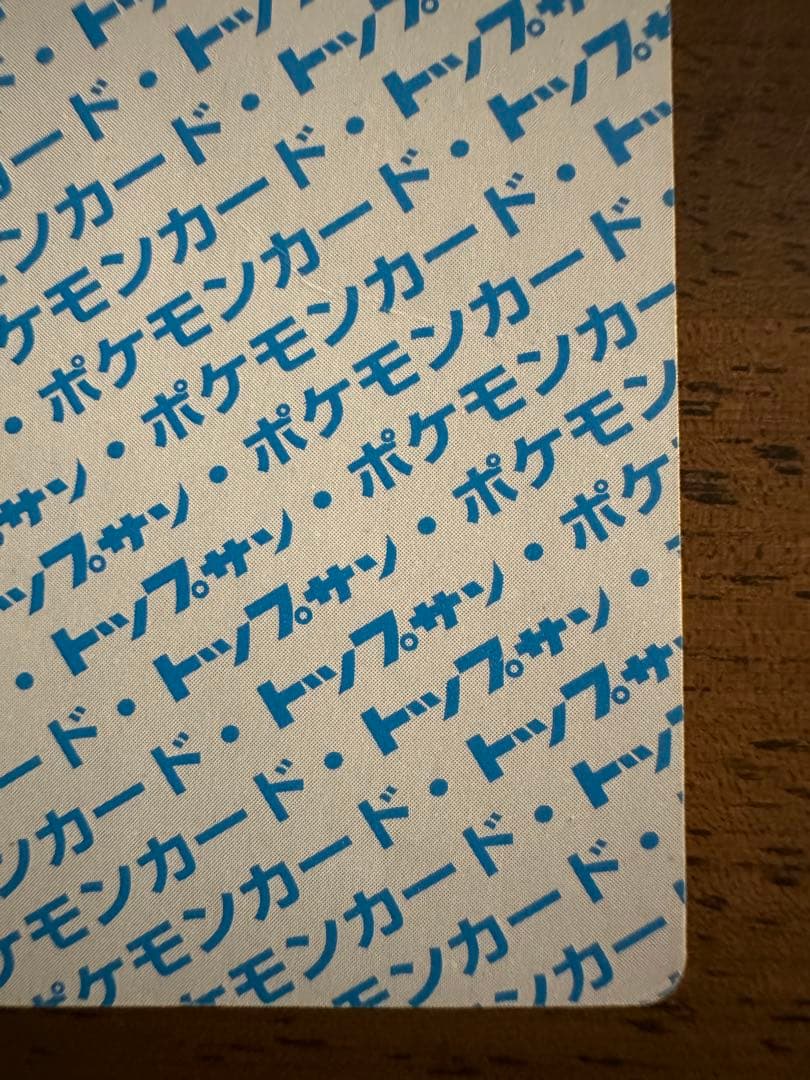 ・ト
カード・トッ
ンカード・トップ
ケモンカード・トップサ
・ポケモンカード・トップサ
サン・ポケモンカード・トッ
ップサン・ポケモンカード・
・トップサン・ポケモンカー
ード・トップサン・ポケモン
ンカード・トップサン・ポケ
ケモンカード・トップサン・
ポケモンカード・トップサ
ケモンカード・トッ
モンカード・
ンカー